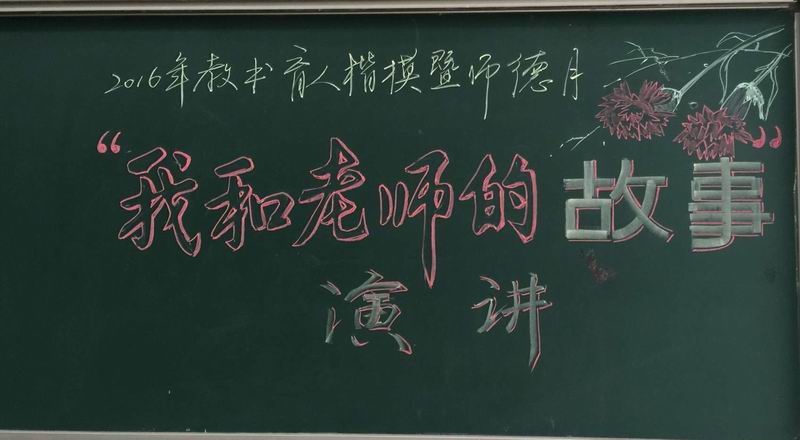 2016年教书育人楷模暨师德月
“我和老师的故事”
演讲